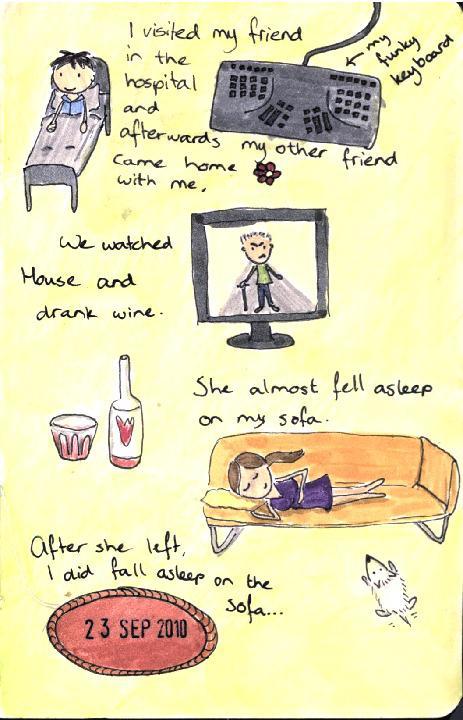 I visited my friend
in the
hospital
and
afterwards my other friend
came home
with me.
← my
funky
keyboard
We watched
House and
drank wine.
She almost fell asleep
on my sofa.
After she left,
I did fall asleep on the
sofa...
23 SEP 2010